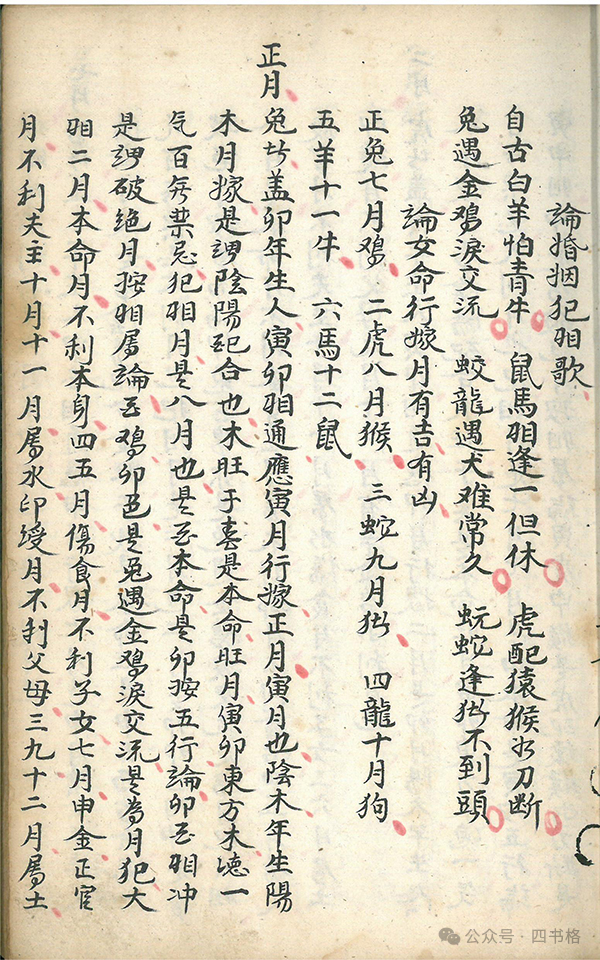 論婚姻犯相歌
自古白羊怕青牛 鼠馬相逢一但休 虎配猿猴水刀断
兔遇金鸡淚交流 蛟龍遇犬难常久 蚖蛇逢猪不到頭
論女命行嫁月有吉有凶
正兔七月鸡 二虎八月猴 三蛇九月猪 四龍十月狗
五羊十一牛 六馬十二鼠
正月
兔者盖卯年生人寅卯相通應寅月行嫁正月寅月也陰木年生陽
木月嫁是謂陰陽配合也木旺于春是本命旺月寅卯東方木德一
気百無禁忌犯相月是八月也是至本命是卯按五行論卯至相冲
是謂破絶月按相属論至鸡卯邑是兔遇金鸡淚交流是為月犯大
相二月本命月不利本身四五月傷食月不利子女七月申金正官
月不利夫主十月十一月属水印绶月不利父母三九十二月属土
公众号·四书格